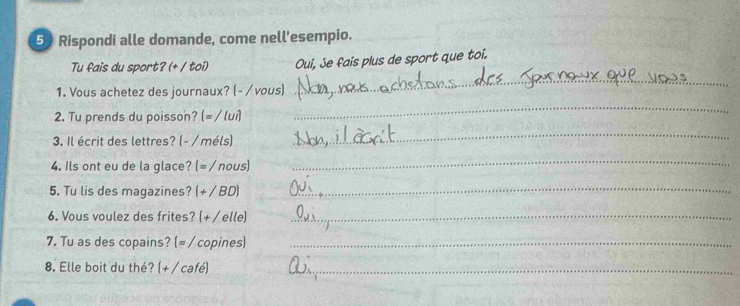 5 Rispondi alle domande, come nell'esempio.
Tu fais du sport? (+ / toi) Oui, Je fais plus de sport que toi.
1. Vous achetez des journaux? (- / vous) Non, nous achetons des journaux que vous
2. Tu prends du poisson? (= / lui)
3. Il écrit des lettres? (- / méls) Non, il écrit
4. Ils ont eu de la glace? (= / nous)
5. Tu lis des magazines? (+ / BD) Oui,
6. Vous voulez des frites? (+ / elle) Oui,
7. Tu as des copains? (= / copines)
8. Elle boit du thé? (+ / café) Oui,